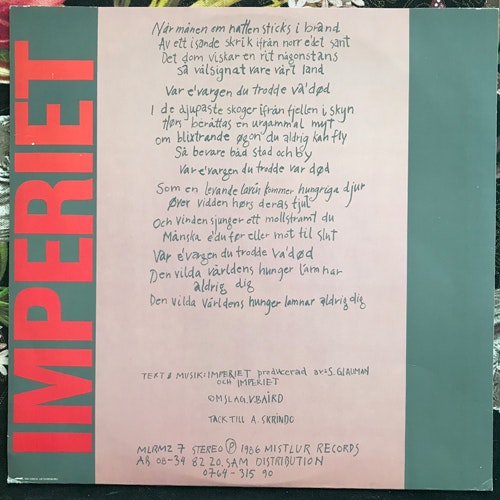 IMPERIET
När månen om natten sticks i brand
Av ett isande skrik ifrån norr e'det sant
Det dom viskar en rit någonstans
Så välsignat vare vårt land
Var e'vargen du trodde va'död
I de djupaste skoger ifrån fjellen i skyn
Hørs berättas en urgammal myt
om blixtrande øgon du aldrig kan fly
Så bevare båd stad och by
Var e'vargen du trodde var död
Som en levande lavin kommer hungriga djur
Øver vidden hørs deras tjut
Och vinden sjunger ett mollstramt du
Månska e'du før eller mot til slut
Var e'vargen du trodde va'død
Den vilda världens hunger lamnar
aldrig dig
Den vilda världens hunger lamnar aldrig dig
TEXT & MUSIK: IMPERIET producerad av: S. GLAUMAN
OCH IMPERIET
OMSLAG. V. BAIRD
TACK TILL A. SKRINDO
MLRMZ 7 STEREO Ⓟ 1986 MISTLUR RECORDS
AB 08-34 82 20. SAM DISTRIBUTION
0764-315 90